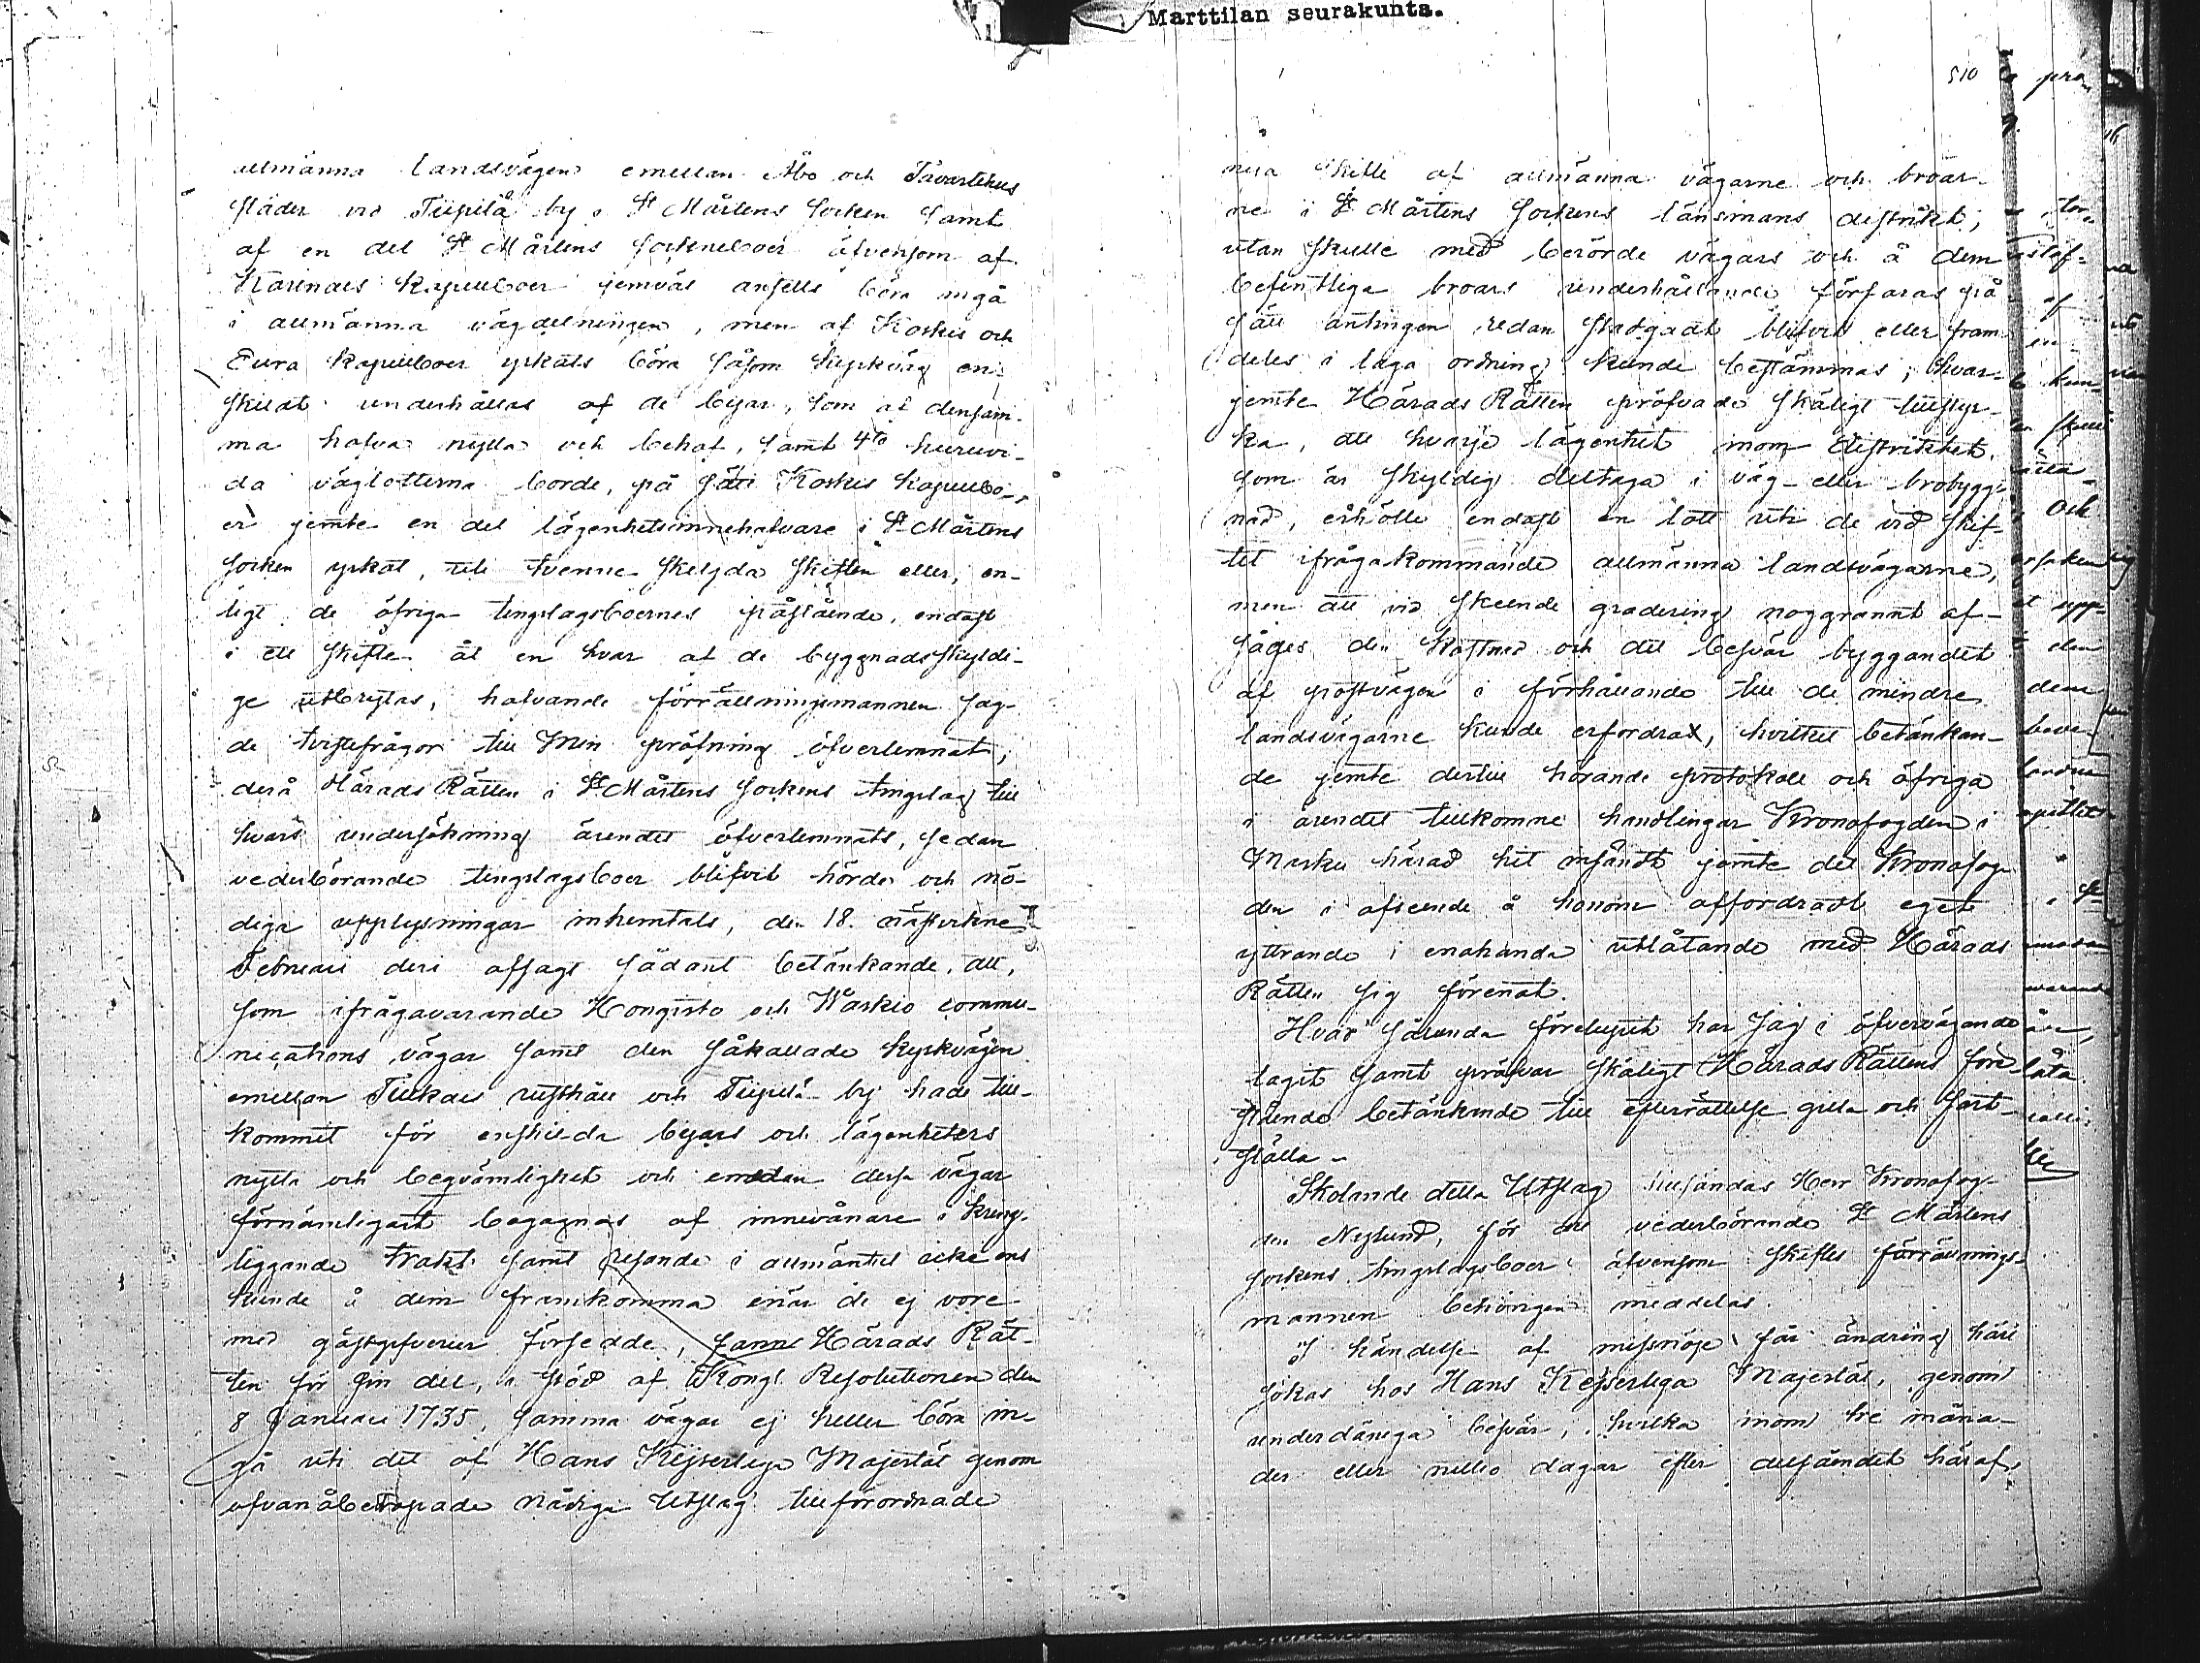 Marttilan seurakunta.
allmänna landsvägen emellan Åbo och Tavastehus
städer vid Tiipilä by i St Mårtens socken samt
af en del St Mårtens sockneboer äfvensom af
Karinais kapellboer jemväl ansetts böra ingå
i allmänna vägdelningen, men af Koskis och
Eura kapellboer yrkats böra såsom kyrkväg en-
skildt underhållas af de byar, som af densam-
ma hafva nytta och behof, samt 4to huruvi-
da väglotterna borde, på sätt Koskis kapellbo-
er jemte en del lägenhetsinnehafvare i St Mårtens
socken yrkat, uti tvenne skilda skiften eller, en-
ligt de öfriga tingslagsboernes påstående, endast
i ett skifte åt en hvar af de byggnadsskyldi-
ge utbrytas, hafvande förrättningsmannen sag-
de tvistefrågor till Min pröfning öfverlemnat;
derå Härads Rätten i St Mårtens sockens tingslag till
hvars undersökning ärendet öfverlemnats, sedan
vederbörande tingslagsboer blifvit hörde och nö-
diga upplysningar inhemtats, den 18. nästvekne
Februari deri afsagt sådant betänkande, att,
som ifrågavarande Hongisto och Waskio commu-
nications vägar samt den såkallade kyrkvägen
emellan Tiukais rusthåll och Tiipilä by hade till-
kommit för enskilda byars och lägenheters
nytta och beqvämlighet och emedan dessa vägar
förnämligast begagnas af innevånare i kring-
liggande trakt samt resande i allmänhet icke ens
kunde å dem framkomma enär de ej vore
med gästgifverier försedde, fanns Härads Rät-
ten för sin del, i stöd af Kongl. Resolutionen den
8 Januari 1735, samma vägar ej heller böra in-
gå uti det af Hans Kejserliga Majestät genom
ofvanåberopade nådiga Utslag tillförordnade
510
nya skifte af allmänna vägarne och broar-
ne i St Mårtens sockens länsmans distrikt;
utan skulle med berörde vägars och å dem
befintliga broars underhållande förfaras på
sätt antingen redan stadgadt blifvit eller fram
deles i laga ordning kunde bestämmas; hvar-
jemte Härads Rätten pröfvade skäligt tillstyr-
ka, att hvarje lägenhet inom distriktet,
som är skyldig deltaga i väg- eller brobygg-
nad, erhölle endast en lott uti de vid skif-
tet ifrågakommande allmänna landsvägarne,
men att vid skeende gradering noggrannt af-
såges den kostnad och det besvär byggandet
af postvägen i förhållande till de mindre
landsvägarne kunde erfordra, hvilket betänkan-
de jemte dertill hörande protokoll och öfriga
i ärendet tillkomne handlingar Kronofogden i
Masku härad hit insändt jemte det Kronofog-
den i afseende å honom affordradt eget
yttrande i enahanda utlåtande med Härads
Rätten sig förenat.
Hvad sålunda förelupit har Jag i öfvervägande
tagit samt pröfvar skäligt Härads Rättens före-
stående betänkande till efterrättelse gilla och fast-
ställa.
Skolande detta Utslag tillsändas Herr Kronofog-
den Nylund, för att vederbörande St Mårtens
sockens tingslagsboer äfvensom skiftes förrättnings-
mannen behörigen meddelas.
I händelse af missnöje får ändring häri
sökas hos Hans Kejserliga Majestät, genom
underdåniga besvär, hvilka inom tre måna-
der eller nittio dagar efter delfåendet häraf,